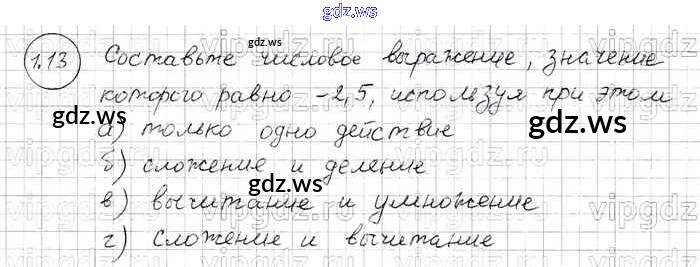 gdz.ws
1.13 Составьте числовое выражение, значение
которого равно -2,5, используя при этом
а) только одно действие
б) сложение и деление
в) вычитание и умножение
г) сложение и вычитание